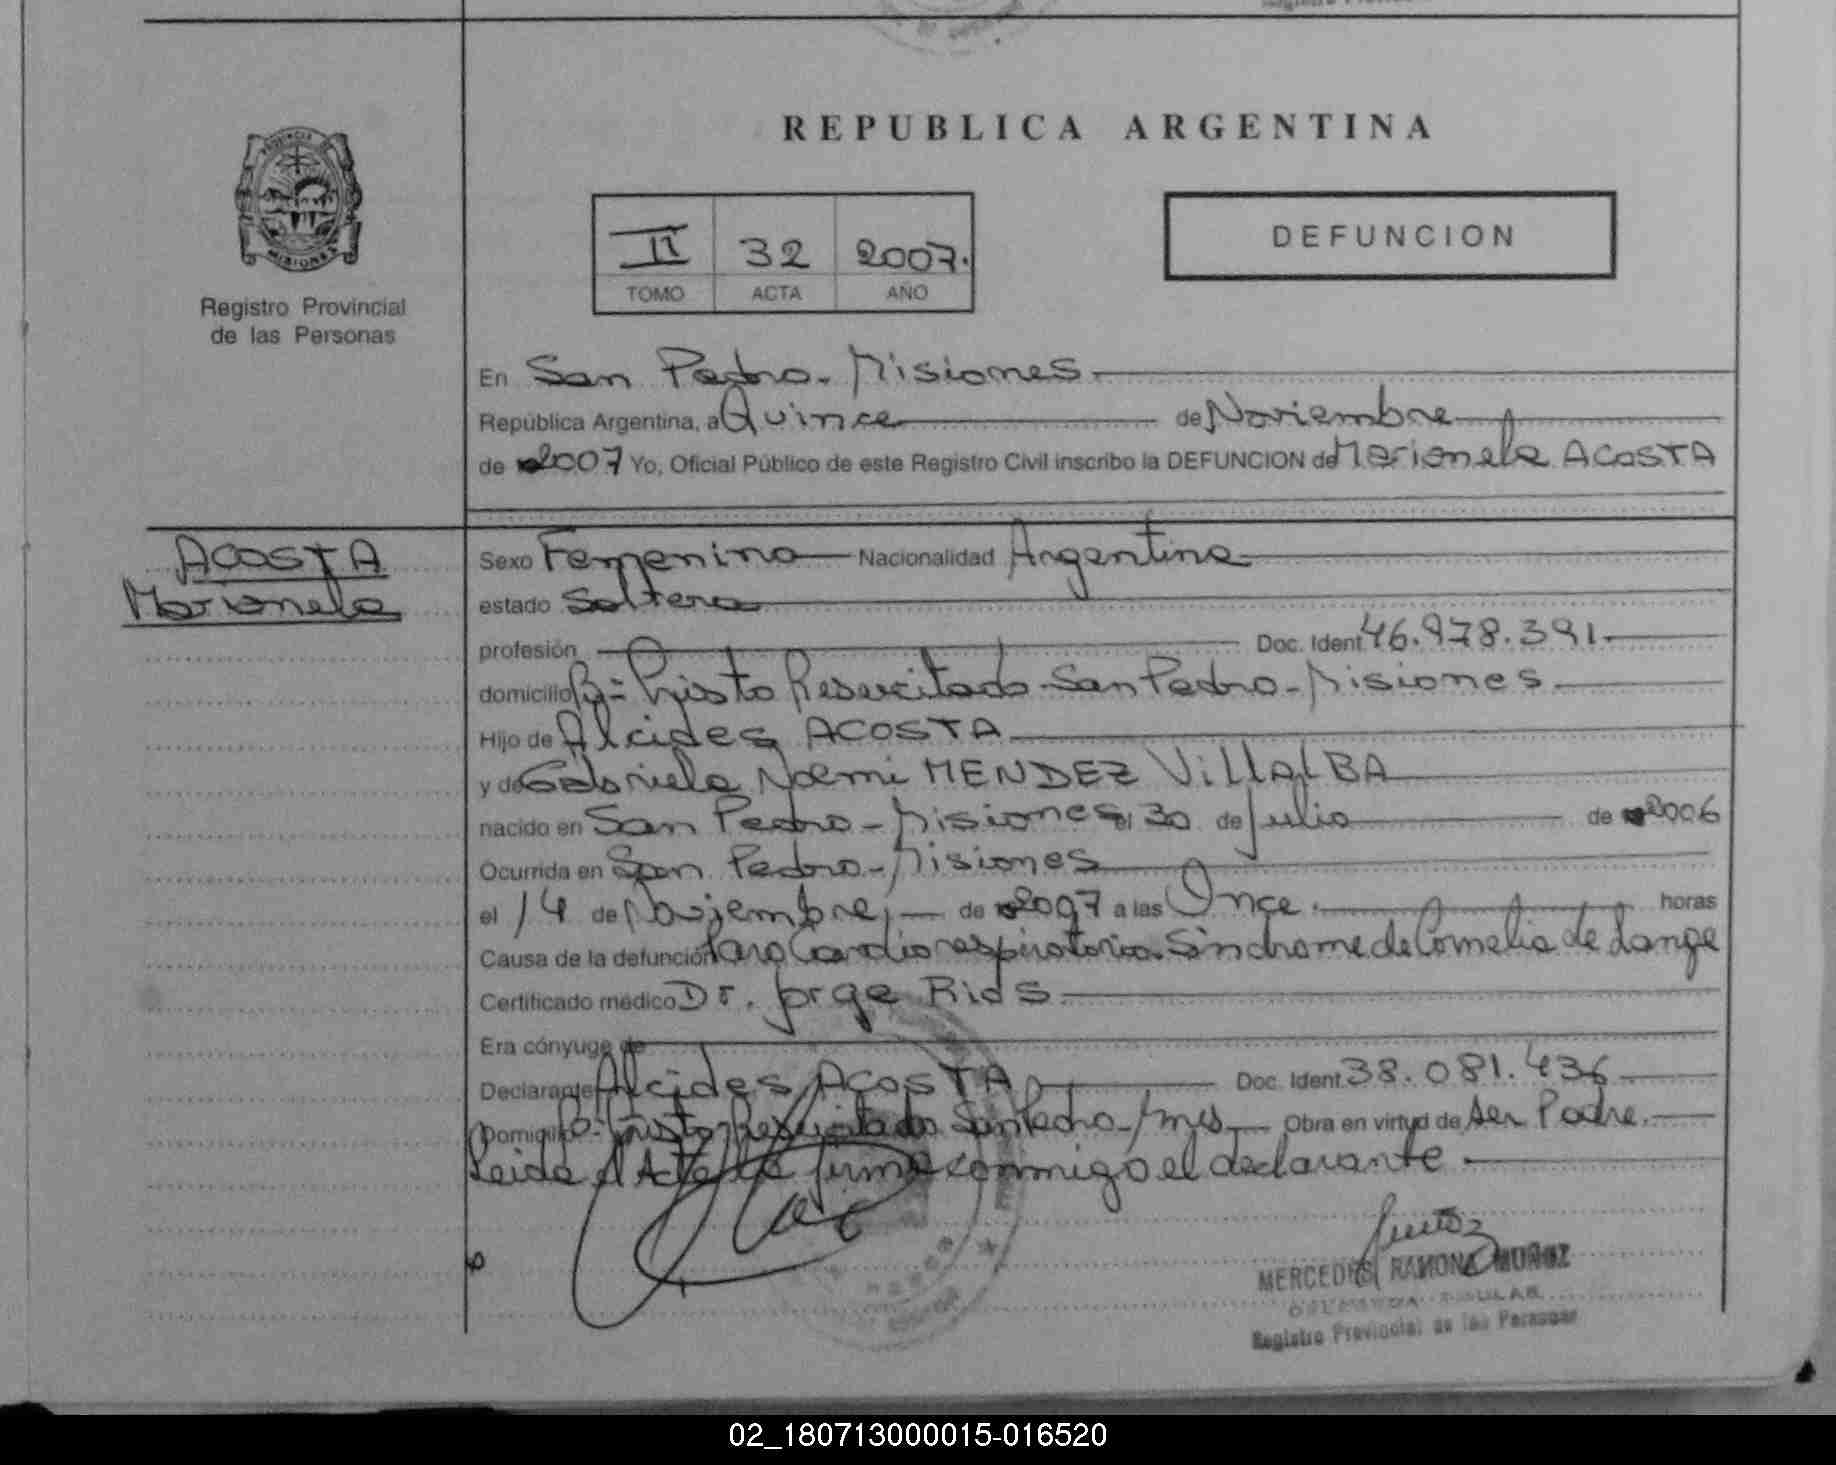 REPUBLICA ARGENTINA
PROVINCIA
MISIONES
Registro Provincial
de las Personas
II 32 2007.
TOMO ACTA AÑO
DEFUNCION
En San Pedro - Misiones
República Argentina, a Quince de Noviembre
de 2007 Yo, Oficial Público de este Registro Civil inscribo la DEFUNCION de Marianela ACOSTA
ACOSTA
Marianela
Sexo Femenino Nacionalidad Argentina
estado Soltera
profesión Doc. Ident. 46.978.391.
domicilio Bº = Cristo Resucitado - San Pedro - Misiones
Hijo de Alcides ACOSTA
y de Gabriela Noemi MENDEZ VillAlBA
nacido en San Pedro - Misiones el 30 de Julio de 2006
Ocurrida en San Pedro - Misiones
el 14 de Noviembre de 2007 a las Once. horas
Causa de la defunción Paro Cardiorespiratorio. Sindrome de Cornelia de Lange
Certificado médico Dr. Jorge Rios
Era cónyuge de
Declarante Alcides ACOSTA Doc. Ident. 38.081.436
Domicilio Bº Cristo Resucitado San Pedro - Mnes Obra en virtud de ser Padre.
Leida el Acta la firma conmigo el declarante.
MERCEDES RAMONA MUÑOZ
Registro Provincial de las Personas
02_180713000015-016520